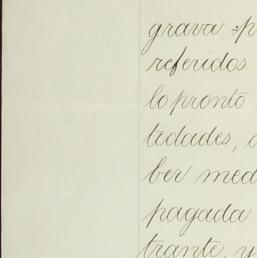 grava p
referidos
lo pronto
tidades,
ber med
pagada
trante, y